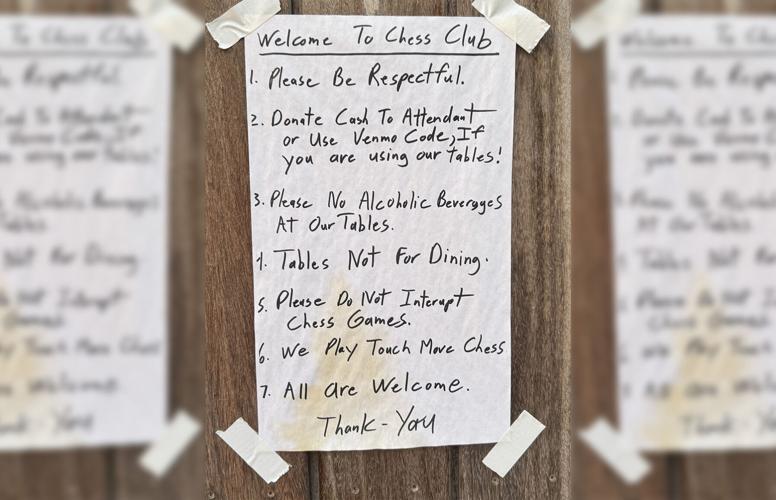 Welcome To Chess Club
1. Please Be Respectful.
2. Donate Cash To Attendant
or Use Venmo Code, If
you are using our tables!
3. Please No Alcoholic Beverages
At Our Tables.
4. Tables Not For Dining.
5. Please Do Not Interupt
Chess Games.
6. We Play Touch Move Chess
7. All are Welcome.
Thank-You